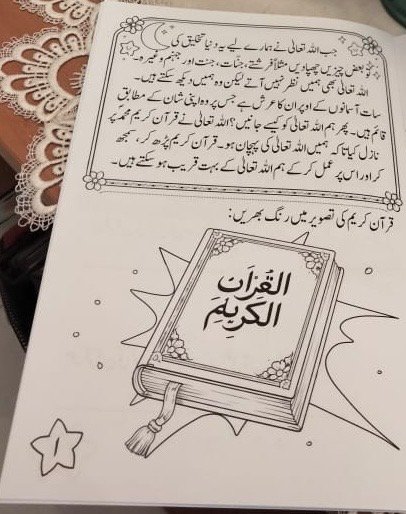 جب اللہ تعالیٰ نے ہمارے لیے یہ دنیا تخلیق کی
تو بعض چیزیں چھپا دیں مثلاً فرشتے، جنات، جنت اور جہنم وغیرہ۔
اللہ تعالیٰ بھی ہمیں نظر نہیں آتے لیکن وہ ہمیں دیکھ سکتے ہیں۔
سات آسمانوں کے اوپر ان کا عرش ہے جس پر وہ اپنی شان کے مطابق
قائم ہیں۔ پھر ہم اللہ تعالیٰ کو کیسے جانیں؟ اللہ تعالیٰ نے قرآن کریم محمد پر
نازل کیا تاکہ ہمیں اللہ تعالیٰ کی پہچان ہو۔ قرآن کریم پڑھ کر، سمجھ
کر اور اس پر عمل کر کے ہم اللہ تعالیٰ کے بہت قریب ہو سکتے ہیں۔
قرآن کریم کی تصویر میں رنگ بھریں:
القُرآن
الكَرِيم
۱